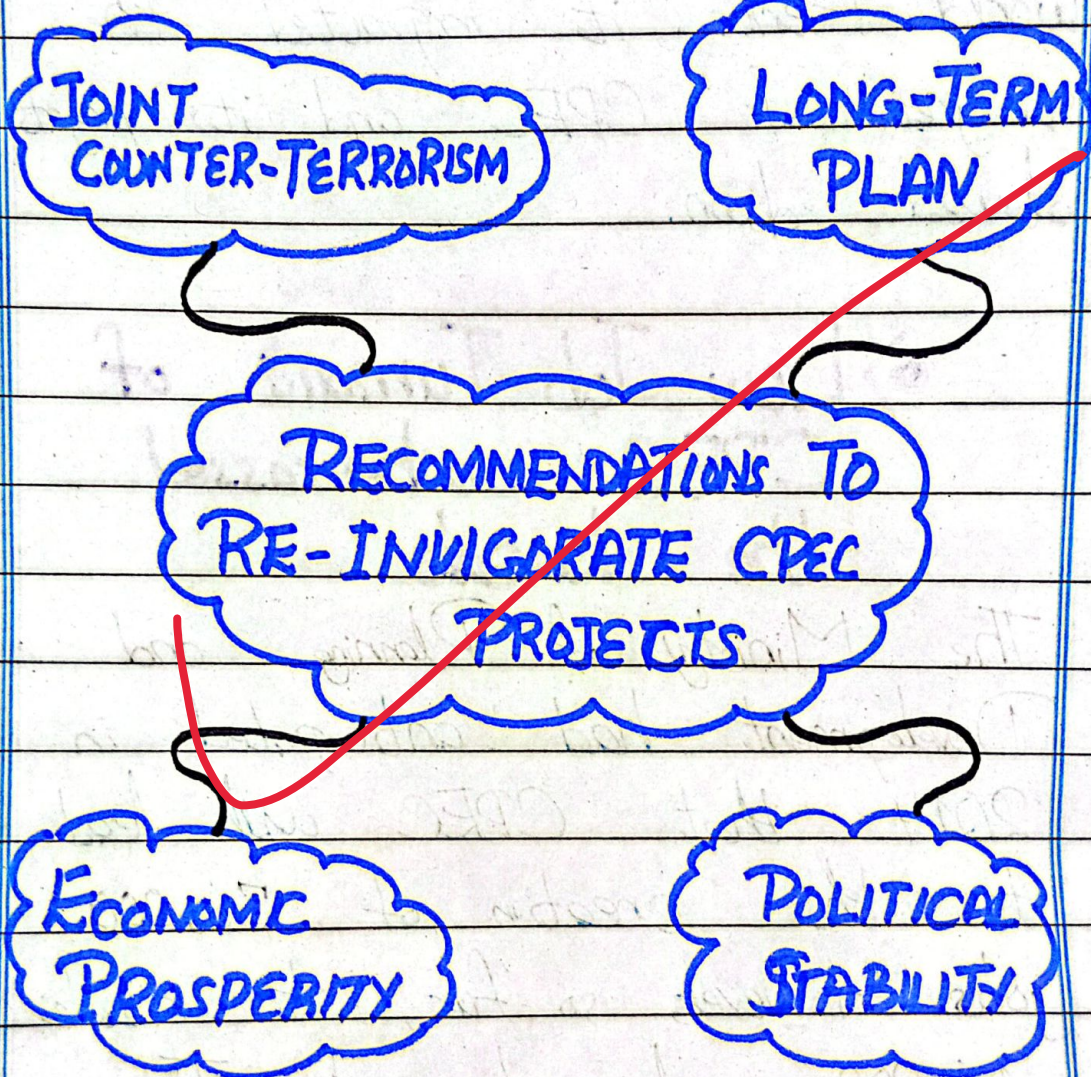 JOINT
COUNTER-TERRORISM
LONG-TERM
PLAN
RECOMMENDATIONS TO
RE-INVIGORATE CPEC
PROJECTS
ECONOMIC
PROSPERITY
POLITICAL
STABILITY